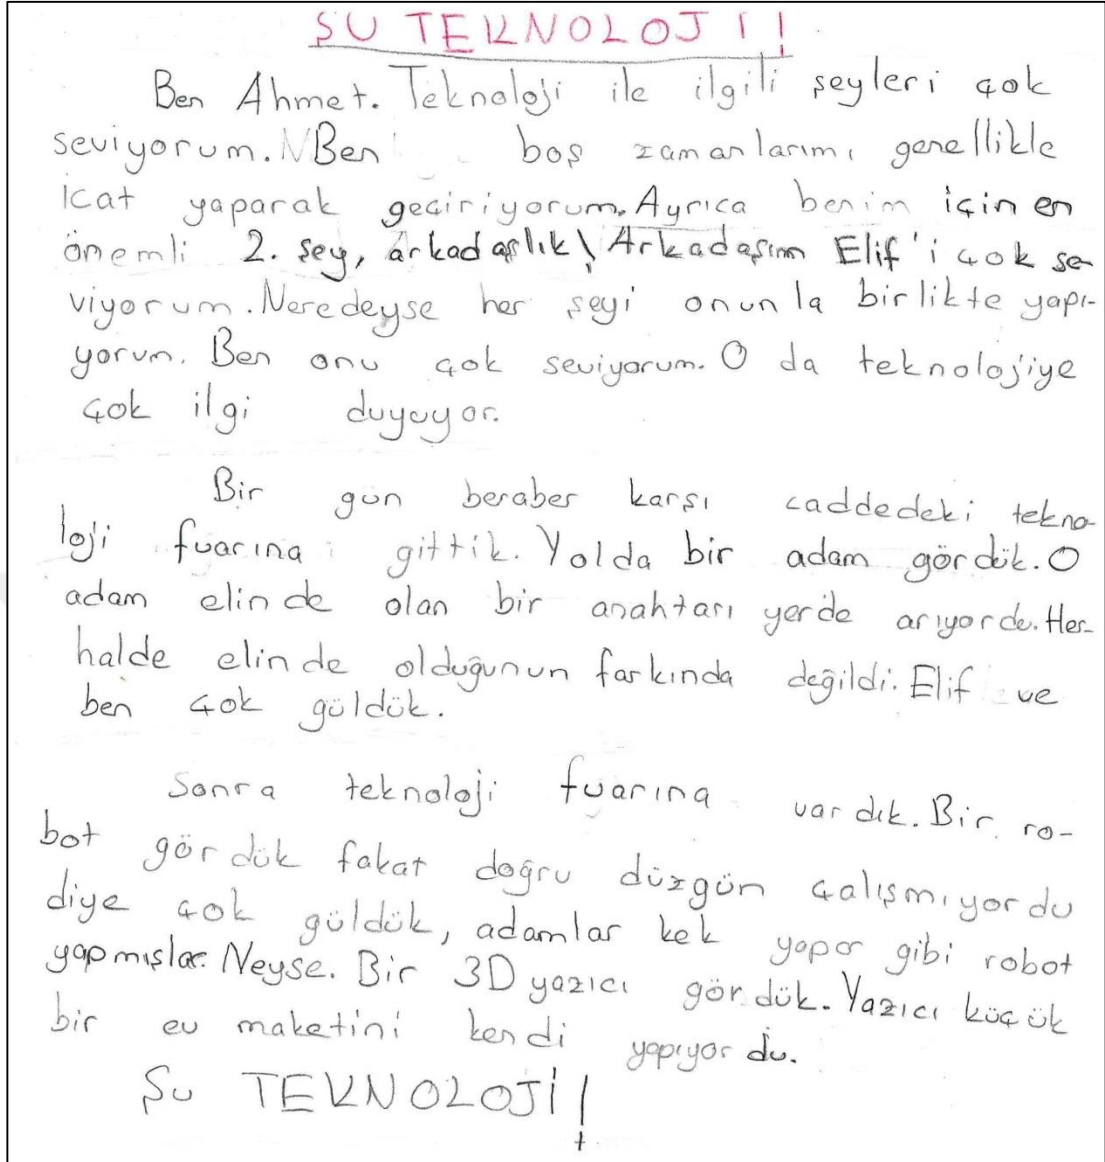 ŞU TEKNOLOJİ!
Ben Ahmet. Teknoloji ile ilgili şeyleri çok
seviyorum. Ben boş zamanlarımı genellikle
icat yaparak geçiriyorum. Ayrıca benim için en
önemli 2. şey, arkadaşlık! Arkadaşım Elif'i çok se-
viyorum. Neredeyse her şeyi onunla birlikte yapı-
yorum. Ben onu çok seviyorum. O da teknolojiye
çok ilgi duyuyor.
Bir gün beraber karşı caddedeki tekno-
loji fuarına gittik. Yolda bir adam gördük. O
adam elinde olan bir anahtarı yerde arıyordu. Her-
halde elinde olduğunun farkında değildi. Elif ve
ben çok güldük.
Sonra teknoloji fuarına vardık. Bir ro-
bot gördük fakat doğru düzgün çalışmıyordu
diye çok güldük, adamlar kek yapar gibi robot
yapmışlar. Neyse. Bir 3D yazıcı gördük. Yazıcı küçük
bir ev maketini kendi yapıyordu.
Şu TEKNOLOJİ!